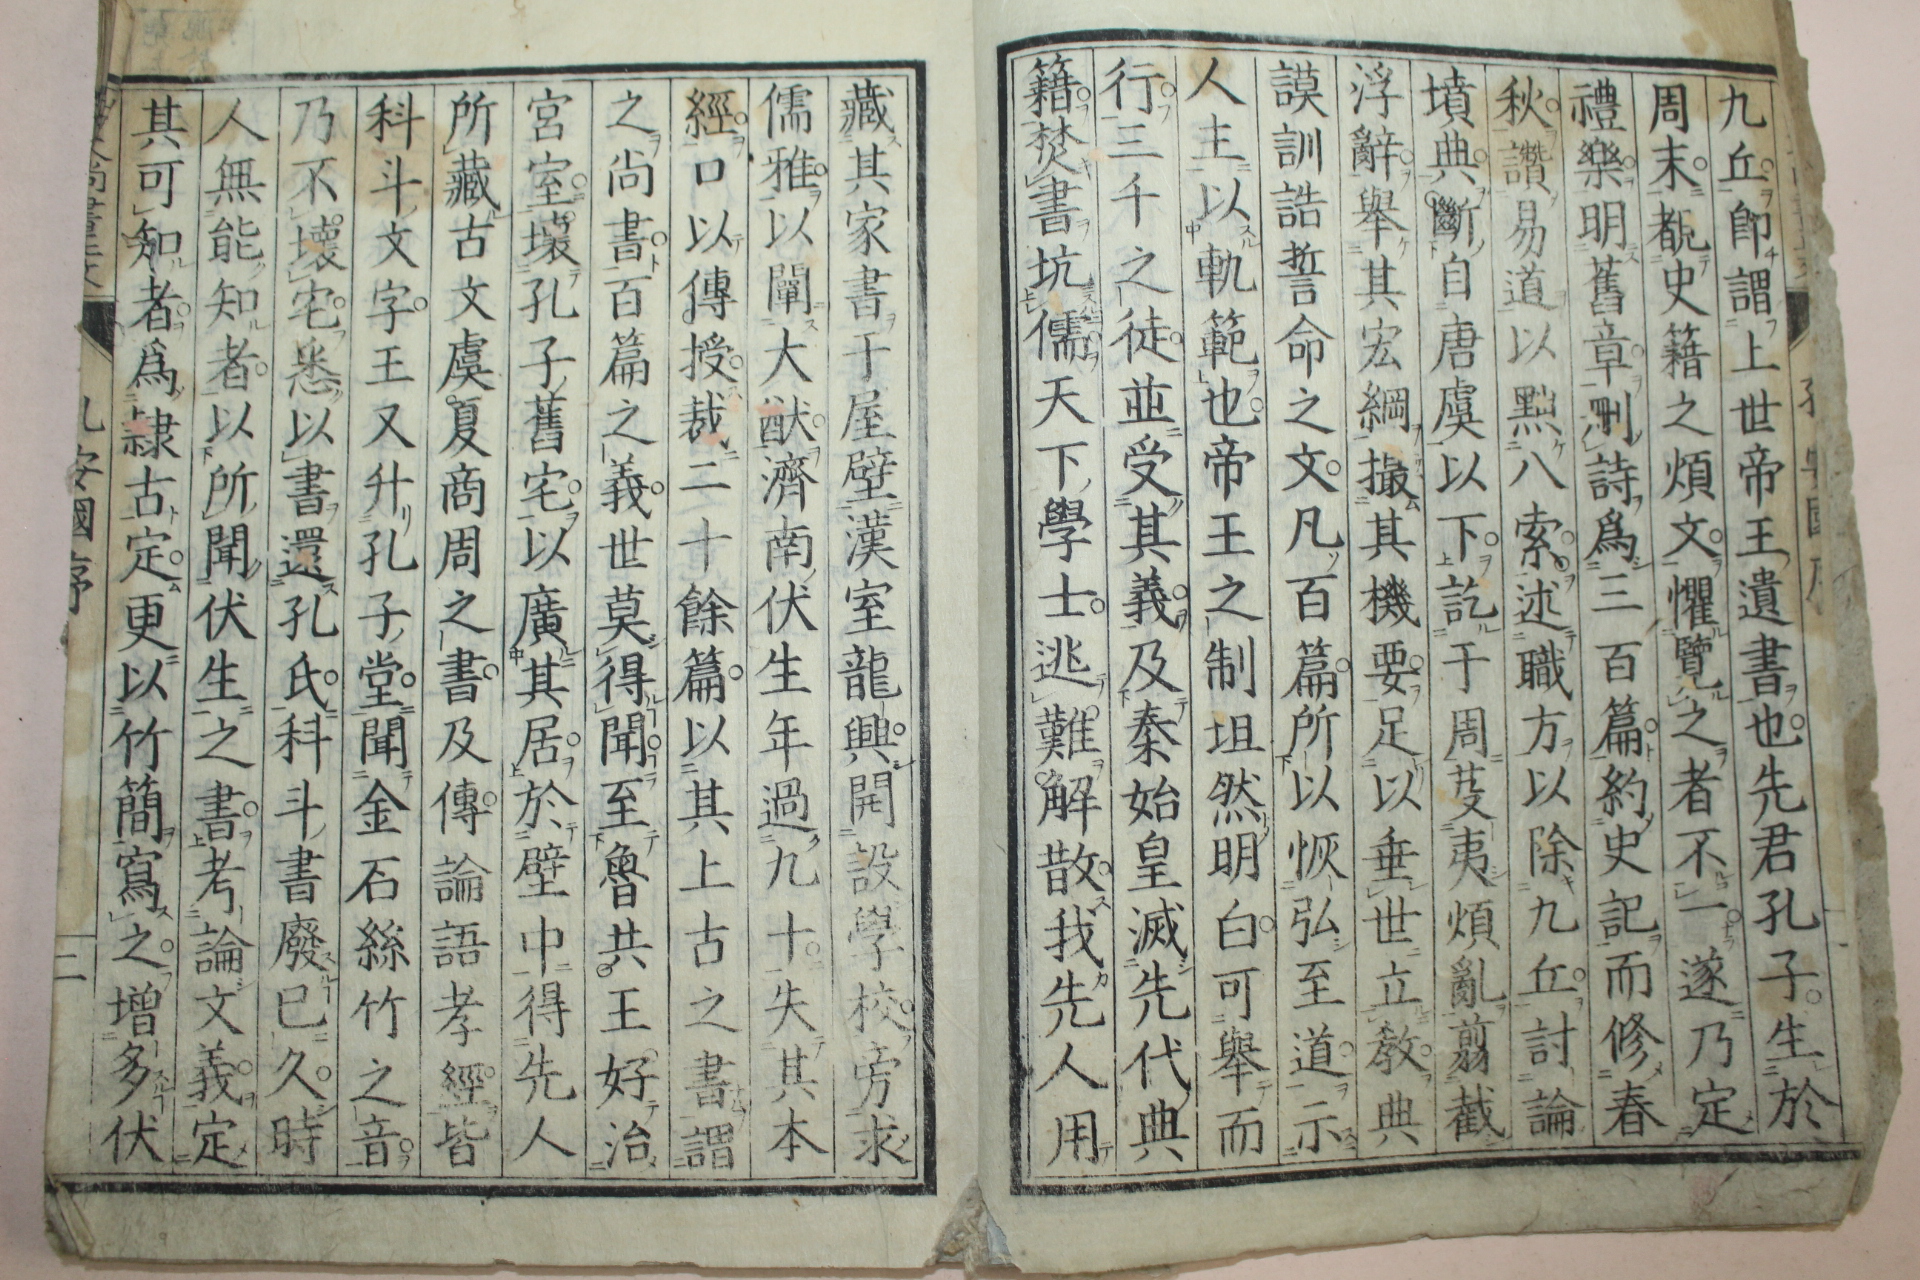 九丘即謂上世帝王遺書也先君孔子生於
周末覩史籍之煩文懼覽之者不一遂乃定
禮樂明舊章刪詩爲三百篇約史記而修春
秋讚易道以黜八索述職方以除九丘討論
墳典斷自唐虞以下訖于周芟夷煩亂翦截
浮辭舉其宏綱撮其機要足以垂世立教典
謨訓誥誓命之文凡百篇所以恢弘至道示
人主以軌範也帝王之制坦然明白可舉而
行三千之徒並受其義及秦始皇滅先代典
籍焚書坑儒天下學士逃難解散我先人用
藏其家書于屋壁漢室龍興開設學校旁求
儒雅以闡大猷濟南伏生年過九十失其本
經口以傳授裁二十餘篇以其上古之書謂
之尚書百篇之義世莫得聞至魯共王好治
宮室壞孔子舊宅以廣其居於壁中得先人
所藏古文虞夏商周之書及傳論語孝經皆
科斗文字王又升孔子堂聞金石絲竹之音
乃不壞宅悉以書還孔氏科斗書廢已久時
人無能知者以所聞伏生之書考論文義定
其可知者爲隷古定更以竹簡寫之增多伏
孔安國序
二